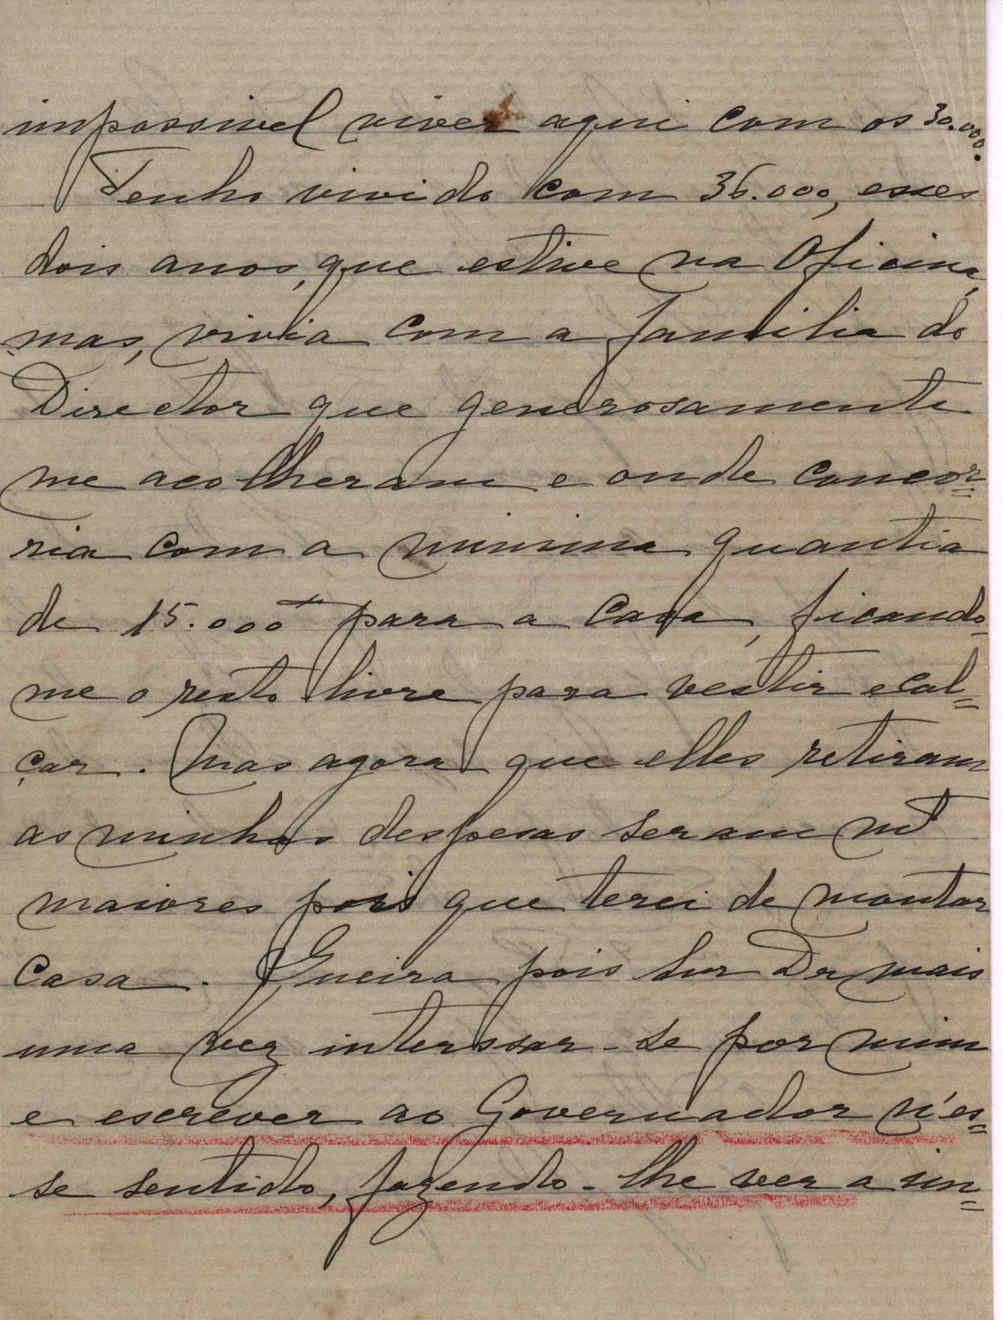 impossivel viver aqui com os 30.000.
Tenho vivido com 36.000, esses
dois anos, que estive na Oficina,
mas, vivia com a familia do
Director que generosamente
me acolheram e onde concor=
ria com a minima quantia
de 15.000 para a casa, ficando-
me o resto livre para vestir e cal=
çar. Mas agora que elles retiram
as minhas despesas seram mt
maiores pois que terei de montar
casa. Queira pois Snr Dr mais
uma vez interssar-se por mim
e escrever ao Governador n'es=
se sentido, fazendo-lhe ver a in=